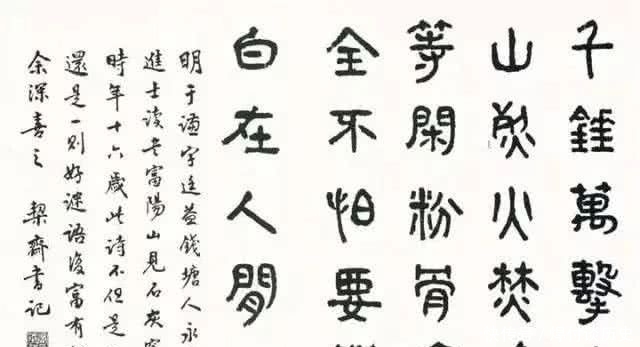 千錘萬擊
山烈火焚
等閑粉骨
全不怕要
白在人間
明于謙字廷益錢塘人永
進士讀書富陽山見石灰窑
時年十六歲此詩不但是
還是一則好謎語復富有
余深喜之 栔齋書記